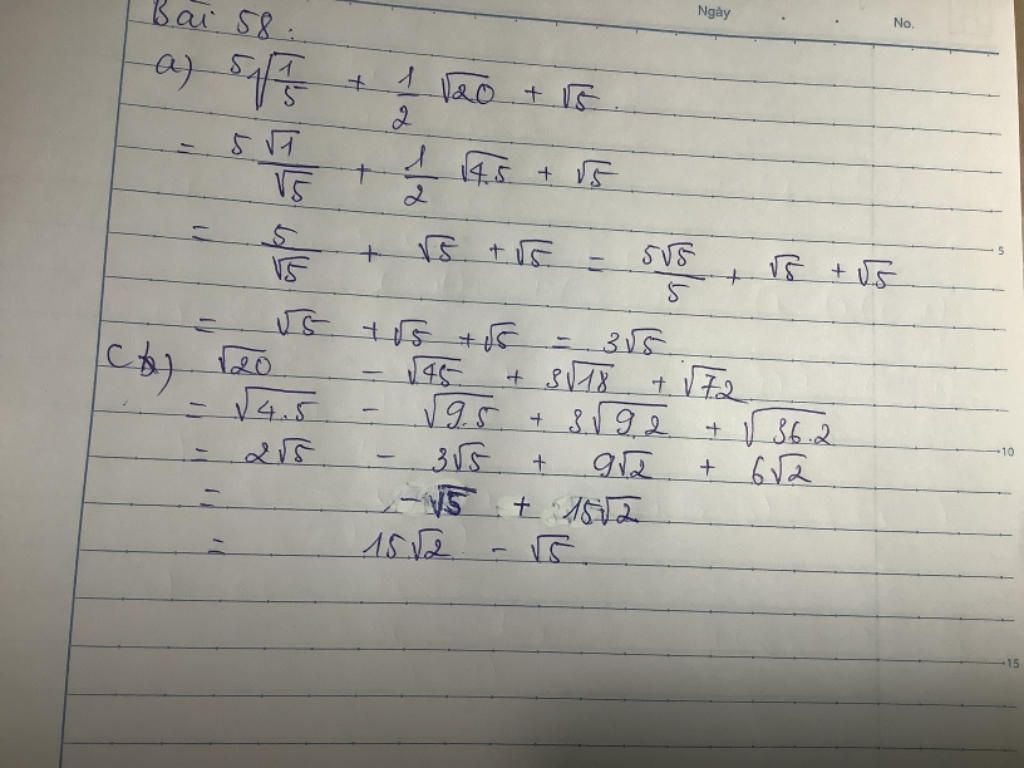 Ngày . . No.
Bài 58:
a) 5√(1/5) + 1/2 √20 + √5.
= 5 √1/√5 + 1/2 √4.5 + √5
= 5/√5 + √5 + √5 = 5√5/5 + √5 + √5
5
= √5 + √5 + √5 = 3√5
C) √20 - √45 + 3√18 + √72
= √4.5 - √9.5 + 3√9.2 + √36.2
= 2√5 - 3√5 + 9√2 + 6√2
10
= -√5 + 15√2
= 15√2 - √5
15